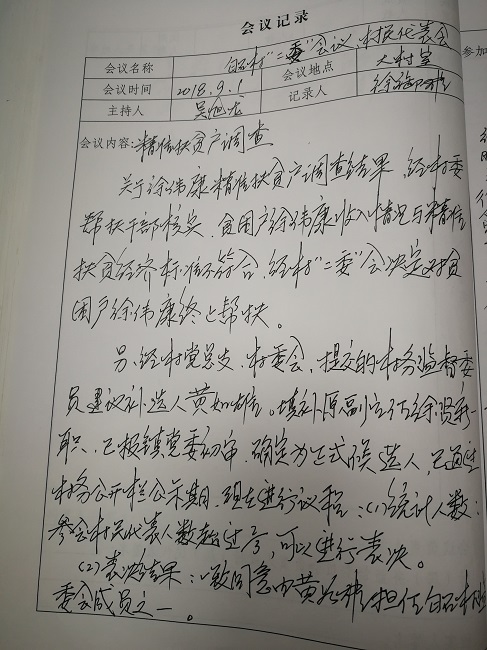 会议记录
会议名称 白石村"二委"会议、村民代表会
会议时间 2018.9.1 会议地点 大村室 参加
主持人 吴旭光 记录人 徐
会议内容:精准扶贫户调查
关于徐伟康精准扶贫户调查结果,经村委
帮扶干部核实,贫困户徐伟康收入情况与精准
扶贫经济标准不符合,经村"二委"会决定对贫
困户徐伟康终止帮扶。
另,经村党总支、村委会,提交的村务监督委
员建议补选人黄如雄。填补原副主任徐贤
职,已报镇党委初审,确定为正式候选人,已通过
村务公开栏公示期,现在进行议程:(1)统计人数:
参会村民代表人数超过2/3,可以进行表决。
(2)表决结果:一致同意由黄如雄担任白石村监
委会成员之一。